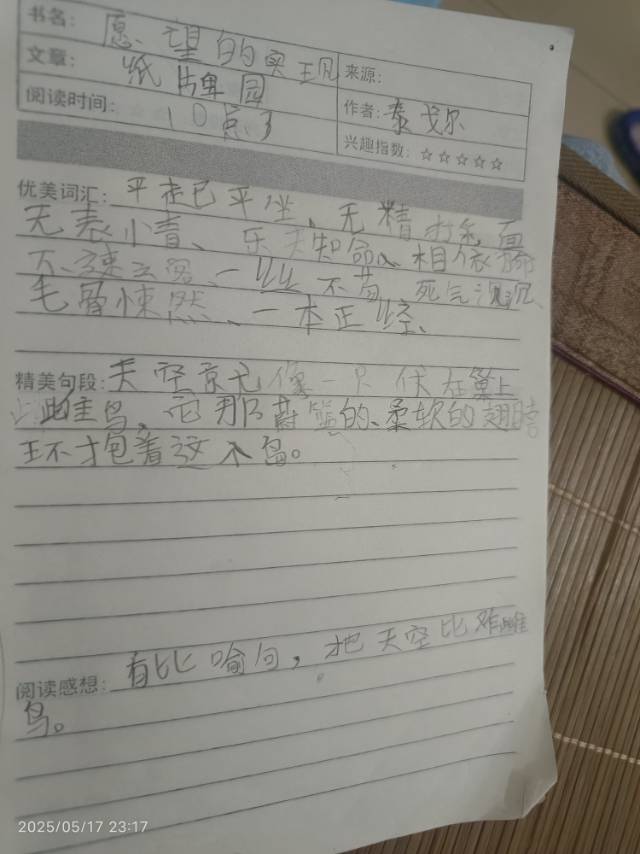 书名：愿望的实现
文章：纸牌国
来源：
阅读时间：10点了
作者：泰戈尔
兴趣指数：☆☆☆☆☆
优美词汇：平起平坐、无精打
无表 、乐天知命、相依
一丝不苟、死气沉沉、
毛骨悚然、一本正经、
精美句段：天空宛 像一只伏在巢上
此隹鸟，它那蔚篮的、柔软的翅
环抱着这个岛。
阅读感想：有比喻句，把天空比
鸟。
2025/05/17 23:17